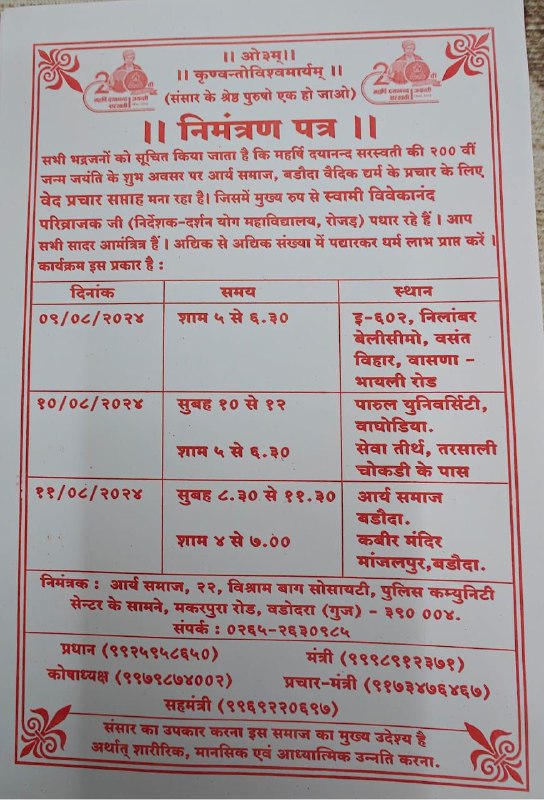 ।। ओ३म्।।
।। कृण्वन्तोविश्वमार्यम् ।।
(संसार के श्रेष्ठ पुरुषो एक हो जाओ)
महर्षि दयानन्द सरस्वती जयन्ती
महर्षि दयानन्द सरस्वती जयन्ती
।। निमंत्रण पत्र ।।
सभी भद्रजनों को सूचित किया जाता है कि महर्षि दयानन्द सरस्वती की २०० वीं
जन्म जयंति के शुभ अवसर पर आर्य समाज, बडौदा वैदिक धर्म के प्रचार के लिए
वेद प्रचार सप्ताह मना रहा है। जिसमें मुख्य रुप से स्वामी विवेकानंद
परिव्राजक जी (निर्देशक-दर्शन योग महाविद्यालय, रोजड़) पधार रहे हैं । आप
सभी सादर आमंत्रित हैं । अधिक से अधिक संख्या में पधारकर धर्म लाभ प्राप्त करें ।
कार्यक्रम इस प्रकार है :
दिनांक समय स्थान
०९/०८/२०२४ शाम ५ से ६.३० इ-६०२, निलांबर
बेलीसीमो, वसंत
विहार, वासणा -
भायली रोड
१०/०८/२०२४ सुबह १० से १२ पारुल युनिवर्सिटी,
वाघोडिया.
शाम ५ से ६.३० सेवा तीर्थ, तरसाली
चोकडी के पास
११/०८/२०२४ सुबह ८.३० से ११.३० आर्य समाज
बडौदा.
शाम ४ से ७.०० कबीर मंदिर
मांजलपुर,बडौदा.
निमंत्रक : आर्य समाज, २२, विश्राम बाग सोसायटी, पुलिस कम्युनिटी
सेन्टर के सामने, मकरपुरा रोड, वडोदरा (गुज) - ३९० ००४.
संपर्क : ०२६५-२६३०९८५
प्रधान (९९२५९५८६५०) मंत्री (९९९८९१२३७१)
कोषाध्यक्ष (९९७९८७४००२) प्रचार-मंत्री (९१७३४७६४६७)
सहमंत्री (९९६९२२०६९७)
संसार का उपकार करना इस समाज का मुख्य उदेश्य है
अर्थात् शारीरिक, मानसिक एवं आध्यात्मिक उन्नति करना.